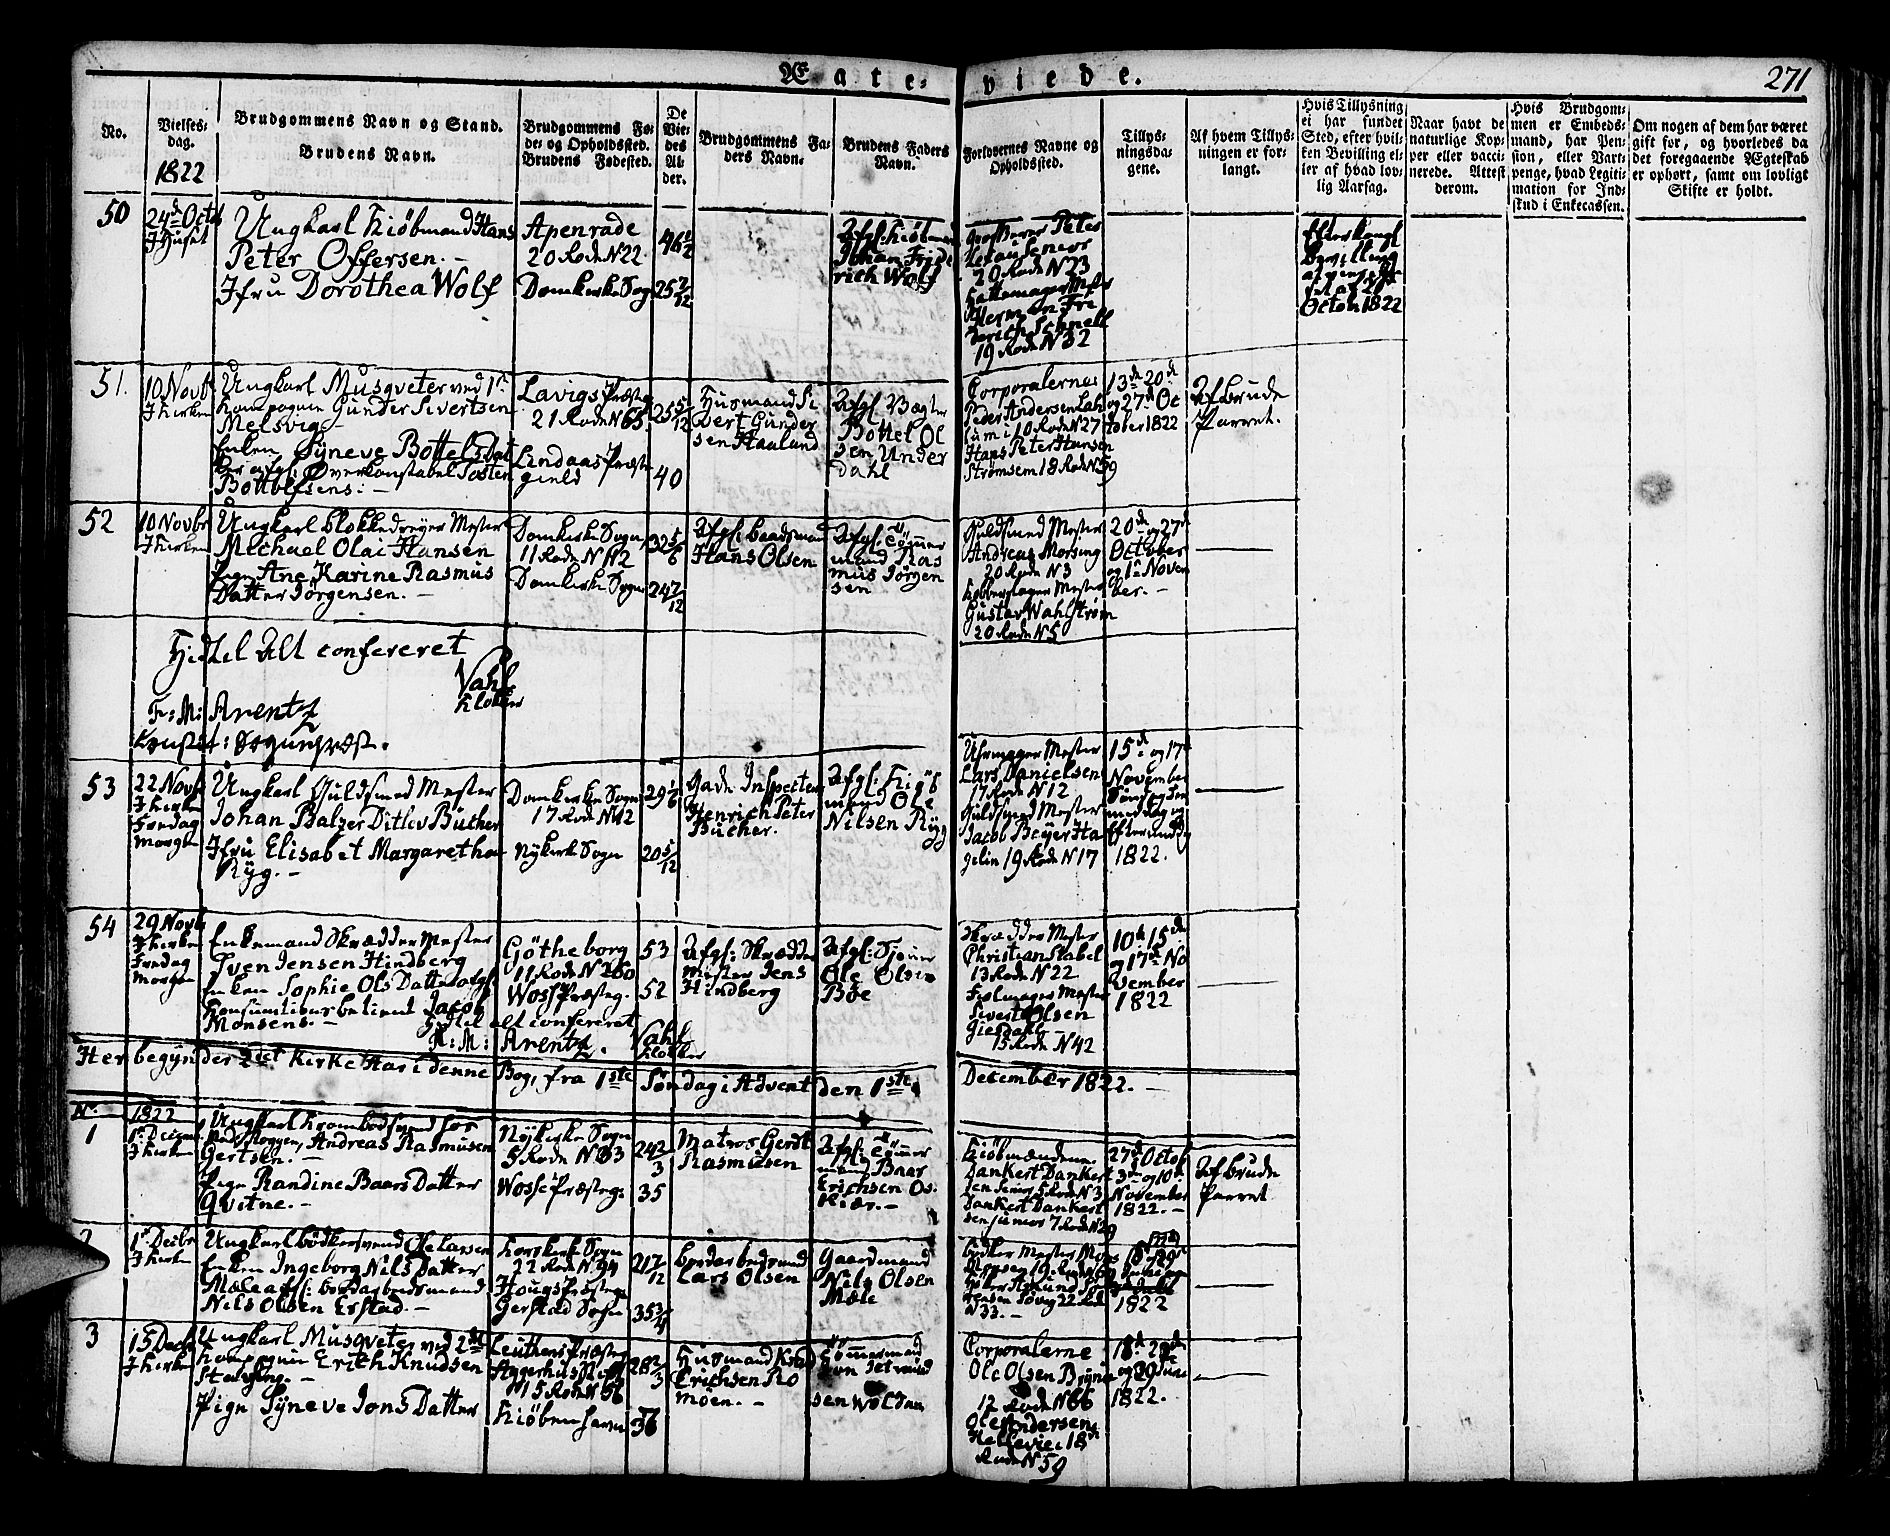 Ægte- viede.
271
No.
Vielses-
dag.
1822
Brudgommens Navn og Stand.
Brudens Navn.
Brudgommens Fø-
de- og Opholdssted.
Brudens Fødested.
De
Vie-
des
Al-
der.
Brudgommens Fa-
ders Navn.
Brudens Faders
Navn.
Forlovernes Navne og
Opholdssted.
Tillys-
ningsda-
gene.
Af hvem Tillys-
ningen er for-
langt.
Hvis Tillysning
ei har fundet
Sted, efter hvil-
ken Bevilling el-
ler af hvad lov-
lig Aarsag.
Naar havt de
naturlige Kop-
per eller vacci-
nerede. Attest
derom.
Hvis Brudgom-
men er Embeds-
mand, har Pen-
sion, eller Vart-
penge, hvad Legiti-
mation for Ind-
skud i Enkecassen.
Om nogen af dem har været
gift før, og hvorledes da
det foregaaende Ægteskab
er ophørt, samt om lovligt
Skifte er holdt.
50
24de Octob
I Huset
Ungkarl Kiøbmand Hans
Peter Offersen. -
Jfru Dorothea Wolf
Apenrade
20 Rode N 22
Domkirke Sogn
46 1/2
25 7/12
Afgl: Kiøbm
Johan Fride
rich Wolf
Peter
20 Rode N 23
Hattemager Mester
Herman Fre
derich Schnell
19 Rode N 32
Efter kongl
Bevilling
October 1822
51.
10 Novb
I Kirken
Ungkarl Musqveter ved 1st
Kompagnie Gunder Sivertsen
Melsvig -
Enken Syneve Bottels Dat
ter afgl: Overkonstabel Tosten
Bottelsens: -
Lavigs Præsteg
21 Rode N 65
Lindaas Præste
gield
25 5/12
40
Husmand Si
vert Gunder
sen Haaland
Afgl: Vægter
Bottel Ol
sen Under
dahl
Corporalerne
Peder Andersen Lah
lum i 10 Rode N 27
Hans Peter Hansen
Strømsem 18 Rode N 59
13de 20de
og 27de Oc
tober 1822
Af Brude
Parret.
52
10 Novbr
I Kirken
Ungkarl Blokkedreyer Mester
Michael Olai Hansen
Pigen Ane Karine Rasmus
Datter Jørgensen. -
Domkirke Sogn
11 Rode N 112
Domkirke Sogn
32 5/6
24 7/12
Afgl: Baadsmand
Hans Olsen
Afgl: Tømmer
mand Ras
mus Jørgen
sen
Guldsmed Mester
Andreas Morsing
20 Rode N 3
Kobberslager Mester
Gustav Wahlstrøm
20 Rode N 5
20de og 27de
October
og 1st Novem
ber. -
Hidtil Alt confereret
Vahl
Klokker
F: M: Arentz
Const: Sogneprest.
53
22 Novb
I Kirken
Fredag
Morgen
Ungkarl Guldsmed Mester
Johan Balzer Ditlev Bücher
Jfru Elisabet Margaretha
Ryg. -
Domkirke Sogn
17 Rode N 12
Nykirke Sogn
29 1/6
20 5/12
Gade Inspecteur
Henrich Peter
Bücher.
Afgl: Kiøb
mand Ole
Nilsen Ryg
Uhrmager Mester
Lars Danielsen
17 Rode N 12
Guldsmed Mester
Jacob Beyer Ha
gelin 19 Rode N 17
15de og 17de
November
1822.
54
29 Novb
I Kirken
Fredag
Morgen
Enkemand Skrædder Mester
Sven Jensen Hindberg
Enken Sophie Ols Datter afgl:
Konsumtionsbetient Jacob
Monsens. -
Götheborg
11 Rode N 260
Wosse Præsteg.
53
52
Afgl: Skrædder
Mester Jens
Hindberg
Afgl:
Ole Olsen
Bøe
Skrædder Mester
Christian Stabel
13 Rode N 22
Mester
Sivert Olsen
Giesdahl
15 Rode N 42
10de 15de
og 17de No
vember
1822
Hidtil alt confereret
F: M: Arentz.
Vahl
Klokker
Her begynder det Kirke Aar i denne Bog, fra 1ste Søndag i Advent den 1ste December 1822. -
No:
1822
1
1st Decemb
I Kirken
Ungkarl Krambodsvend hos
Andreas Rasmusen
Gertsen. -
Pige Randine Baars Datter
Qvitne. -
Nykirke Sogn
5 Rode N 33
Wosse Præsteg:
24 2/3
35
Matros Gerdt
Rasmusen
Afgl: Tømmer
mand Baar
Erichsen Os
Kiær. -
Kiøbmændene
Dankert Danker
sen Senior 5 Rode N 3
Dankert Dankert
sen junior 7 Rode N 29
27de Octob
3de og 10de
November
1822. -
Af Brude
Parret
2
1st Decbr
I Kirken
Ungkarl Bødkersvend Ole Larsen
Enken Ingeborg Nils Datter
Mæle afgl:
Nils Olsen Erstad. -
Korskirke Sogn
22 Rode N 94
Hougs Præsteg:
Gerstad Sogn
21 7/12
35 3/4
Lars Olsen
Gaardmand
Nils Olsen
Mæle
Bødker Mester Mons
Monsen 19 Rode N 60
N 33. -
1822
3
15 Decbr
I Kirken
Ungkarl Musqveter ved 2det
Kompagnie Erich Knudsen
Pige Syneve Jons Datter
Leuthens Præsteg
Aggerhus Stift
15 Rode N 56
Kiøbenhavn
28 2/3
36
Husmand Knud
Erichsen Ro
møen. -
Tømmermand
sen Woldan
Corporalerne
Ole Olsen Brynie
12 Rode N 66
Ole Andersen
Hellevie i 18de
Rode N 59
18de 29de
1822.